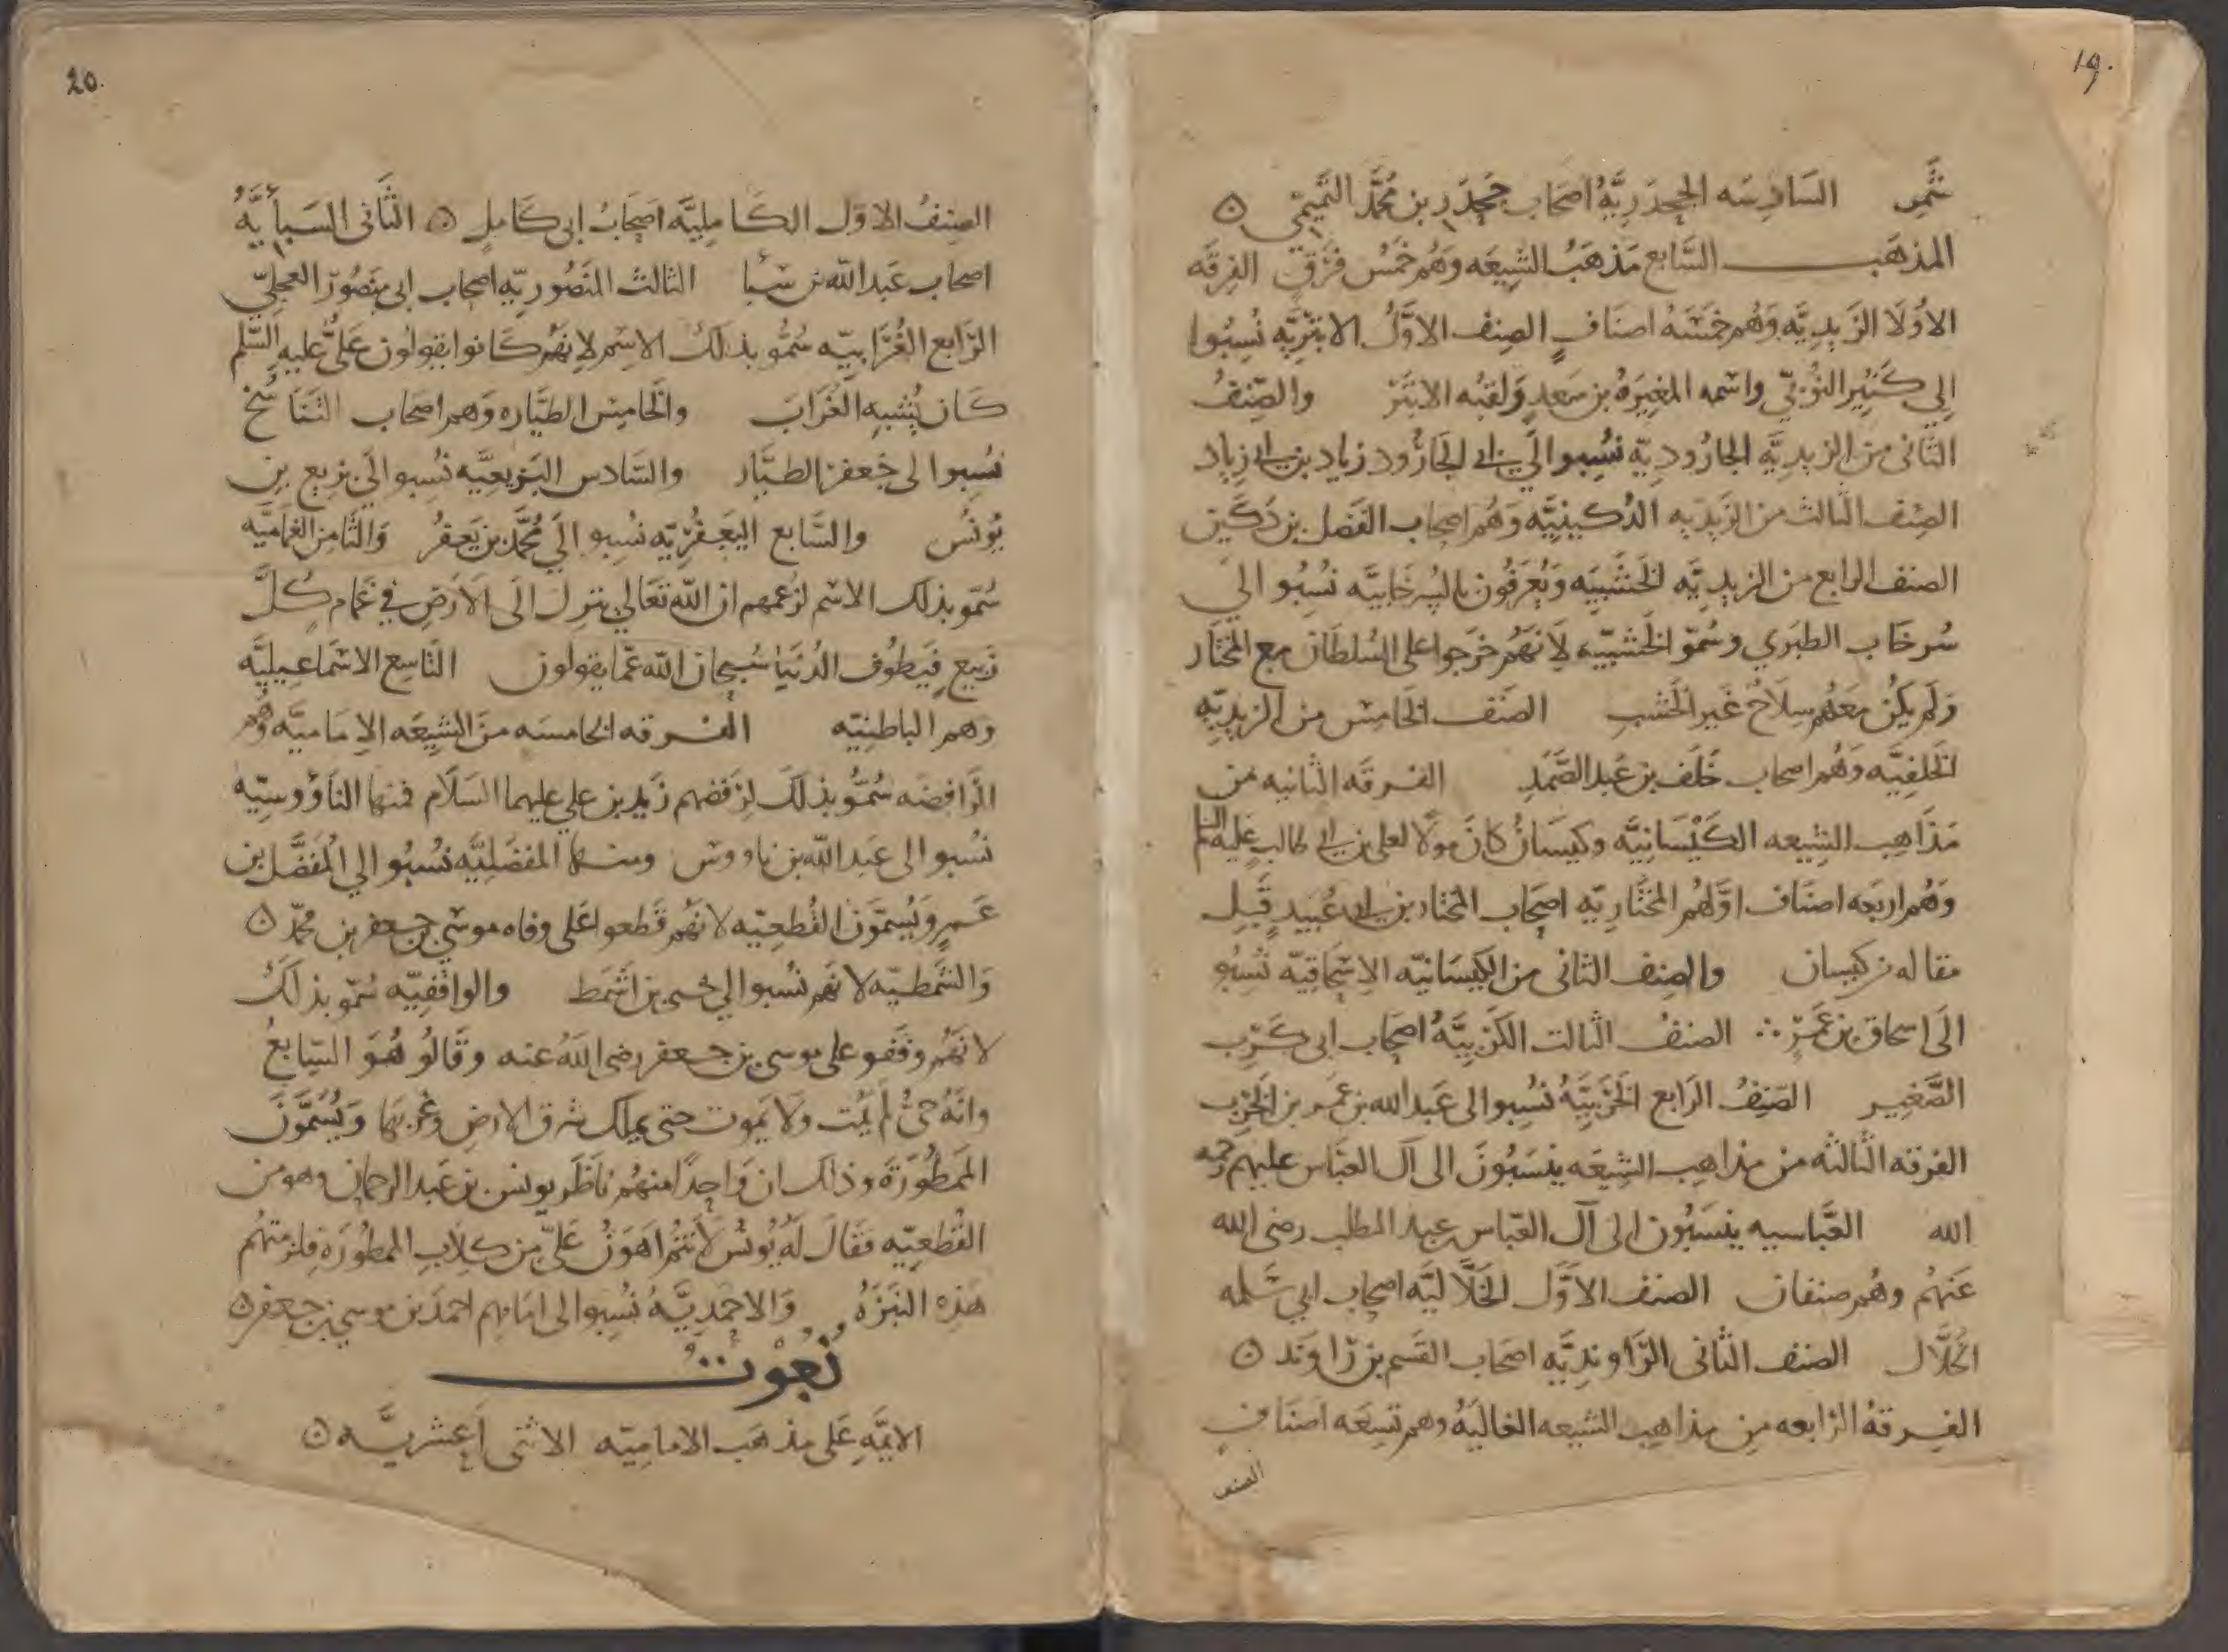 19.
شمر السادسه الجحدريَّةُ اصحاب جحدر بن محمَّد التَّميمّي ۞
المذهب السَّابع مَذهَبُ الشِيعَه وَهُم خَمسُ فِرَقٍ الفِرقَه
الاوُلَا الزَيديَّه وَهُم خمسَهُ اصنَافٍ الصِنف الاوَّلُ الابتَرِيَّه نُسِبُوا
إِلي كَثيِر النُوَّىِ واسمه المغيَرهُ بن سَعدٍ وَلقبُه الابتَر والصِّنفُ
الثاني من الزيديَّه الجارُوديّه نُسِبوا الَي ابي الجَارُود زياد بن ابي زياد
الصِنف الثالث من الزَيديه الدُكَينيَّه وَهُم اصحاب الفَضل بن دُكَين
الصنف الرابع من الزيديَّه الخَشَبيَه وَيُعرَفُون بالسُرخَابيَّه نُسِبُو الَي
سُرخَاب الطبَري وسُمّو الخَشبيّه لِاَنهَمُ خرَجوا على السُلطَان مع المختَار
وَلَم يَكُن مَعَهُم سِلَاحٌ غَير الخَشب الصَنف الخَامس من الزيديّهِ
الخلفيَّه وَهُم اصحاب خَلَف بن عَبد الصَّمَدِ الفرقَه الثانيه من
مَذَاهِب الشِيعه الكَيْسَانِيَّه وكيسَانُ كانَ مولَا لعلى بن ابي طالب عَليه السلم
وَهُم اربَعه اصنَاف اوَّلهُم المختَاريّه اصحَاب المختار بن ابي عُبَيد قَبِلِ
مقاله من كيسان والصِنف الثاني من الكَيسَانيّه الاِسحَاقيّه نُسِبُو
الَى اسحاق بن عَمَرٍ ∴ الصنفُ الثالث الكَرِبيَّهُ اصحَاب ابى كَرِب
الصَّغِير الصّنِفُ الرَابع الحَربيَّهُ نُسِبوا الى عَبد الله بن عمَر بن الحَرب
الفرقه الثالثه من مذاهِب الشِيعَه ينسَبُونَ الى آل العبَّاس عليهم رحمه
الله العَّباسيه ينسَبُون الى آل العَبّاس عبد المطلب رضي الله
عَنهمُ وهُم صنفان الصنف الاوَّل الخَلَّاليَّه اصحاب ابي سَلمه
الخَلَّال الصنف الثاني الرَّاونديَّه اصحَاب القَسم بن رَاوَند ۞
الفِرقهُ الرابعه من مذاهِب الشيعه الغاليَهُ وهم تسِعَه اصنَافٍ
الصنف
20.
الصِنفُ الاوّل الكَامِليَّه اصَحَابُ ابي كَامل ۞ الثَّاني السَبأيَّهُ
اصحاب عَبد الله بن سَبأ الثالث المنَصُوريّه اصحاب ابي منصُورٍ العِجليّ
الرّابع الغُرَابيّه سُمُّو بذلكَ الاسِم لِانهَّم كَانوا يقولُون عَلىٌّ عليهِ السَّلم
كَان يُشبِهِ الغُرَابَ والخَامسِ الطيَّاره وَهم اصَحاب التَنَاسُخ
نسُبِوا لى جَعفر الطيَّار والسَّادس البَزيعيَّه نُسِبو الَي بزيع بن
يُونسُ والسَّابع اليَعفُريّه نسُبو الَي مُحمَّد بن يَعفُر وَالثَّامِن الغَمَامِيَّه
سُمّو بذلك الاسم لزعمهم ان الله تعَالي ينزل الَى الاَرَضِ في غَمَام كُلَّ
رَبيعٍ فيَطُوف الدُنيَا سُبحان الله عمّا يقولون التّاسِع الاسمَاعيليَّه
وهم الباطنيّه الفرقه الخامسَه منَ الشيِعَه الاِمَاميَّه وَهُم
الرَّافضَه سُمُّو بذلكَ لِرَفضِهم زَيد بن علي عليهما السَلَام فمنها النَاوُوسيّه
نُسبو الى عَبد الله بن ناووس ومنها المفضَليَّه نُسبُو الي المُفَضَّل بن
عَمرٍ وَيُسمَّوَن القُطعيّه لانهَّم قَطعوا عَلى وفاه موسَى بن جعفر بن محمّد ۞
وَالشَّمَطيّه لانهَّم نسُبوا الي يحيى بن اَشمَط والواقفِيّه سُمّو بذلكَ
لانَّهم وَقَفو على موسى بن جعفر رضى اللهُ عنه وَقَالُو هُوَ السَّابعُ
وانَّهُ حىٌّ لَم يمُت وَلَا يَموت حتى يملك شرق الارضِ وغَربهَا وَيُسَمَّوَنَ
المَمطُورَةَ وذلك ان وَاحِدًا منهُم نَاظَر يونس بن عَبد الرحمان وهو من
القُطعيّه فقَالَ لَهُ يُونُسُ لَأنَتمُ اهَوَنُ عَلىَّ من كِلَابِ الممطورَةِ فلزِمتهُم
هَذِه النَبزَهُ وَالاحمديَّهُ نُسِبوا الى امَامِهم احمدَ بن موسى بن جعفر ۞
نُعُوت
الايمَّهِ عَلى مذهَب الامامِيّه الاثنى اَعشريَّه ۞